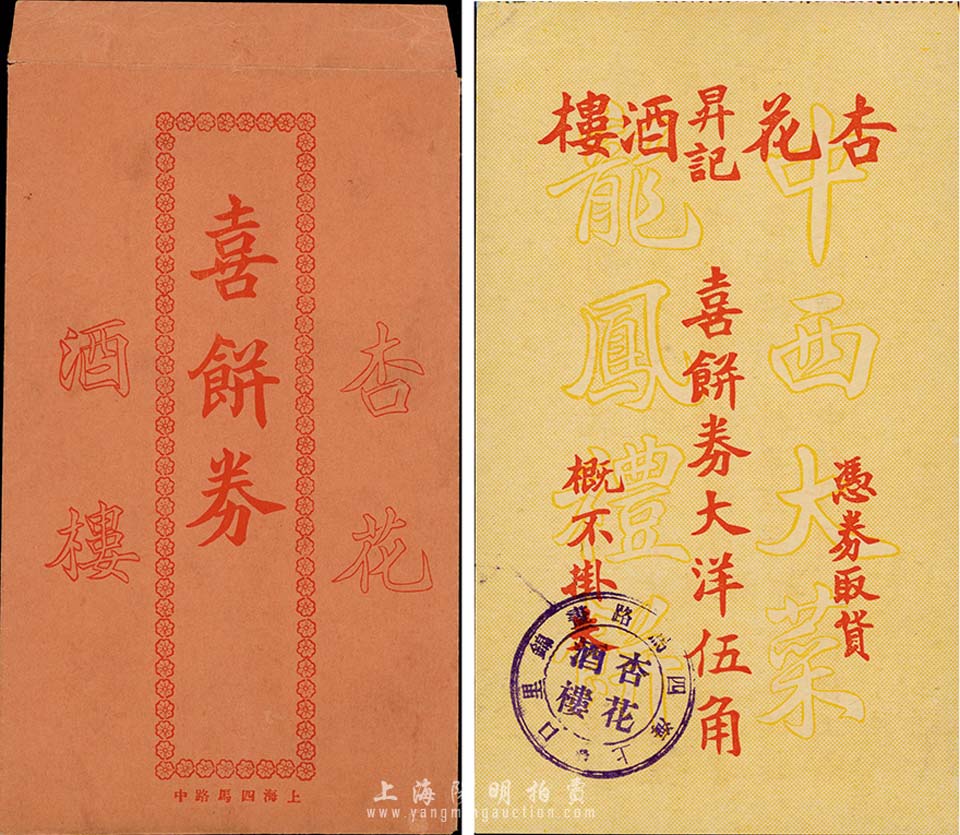 喜餅券
杏花
酒樓
中路馬四海上
杏花昇記酒樓
憑券取貨
喜餅券大洋伍角
概不掛
中西大菜
龍鳳禮
上海四馬路晝錦里口
杏花
酒樓
上海陽明拍賣
www.yangmingauction.com